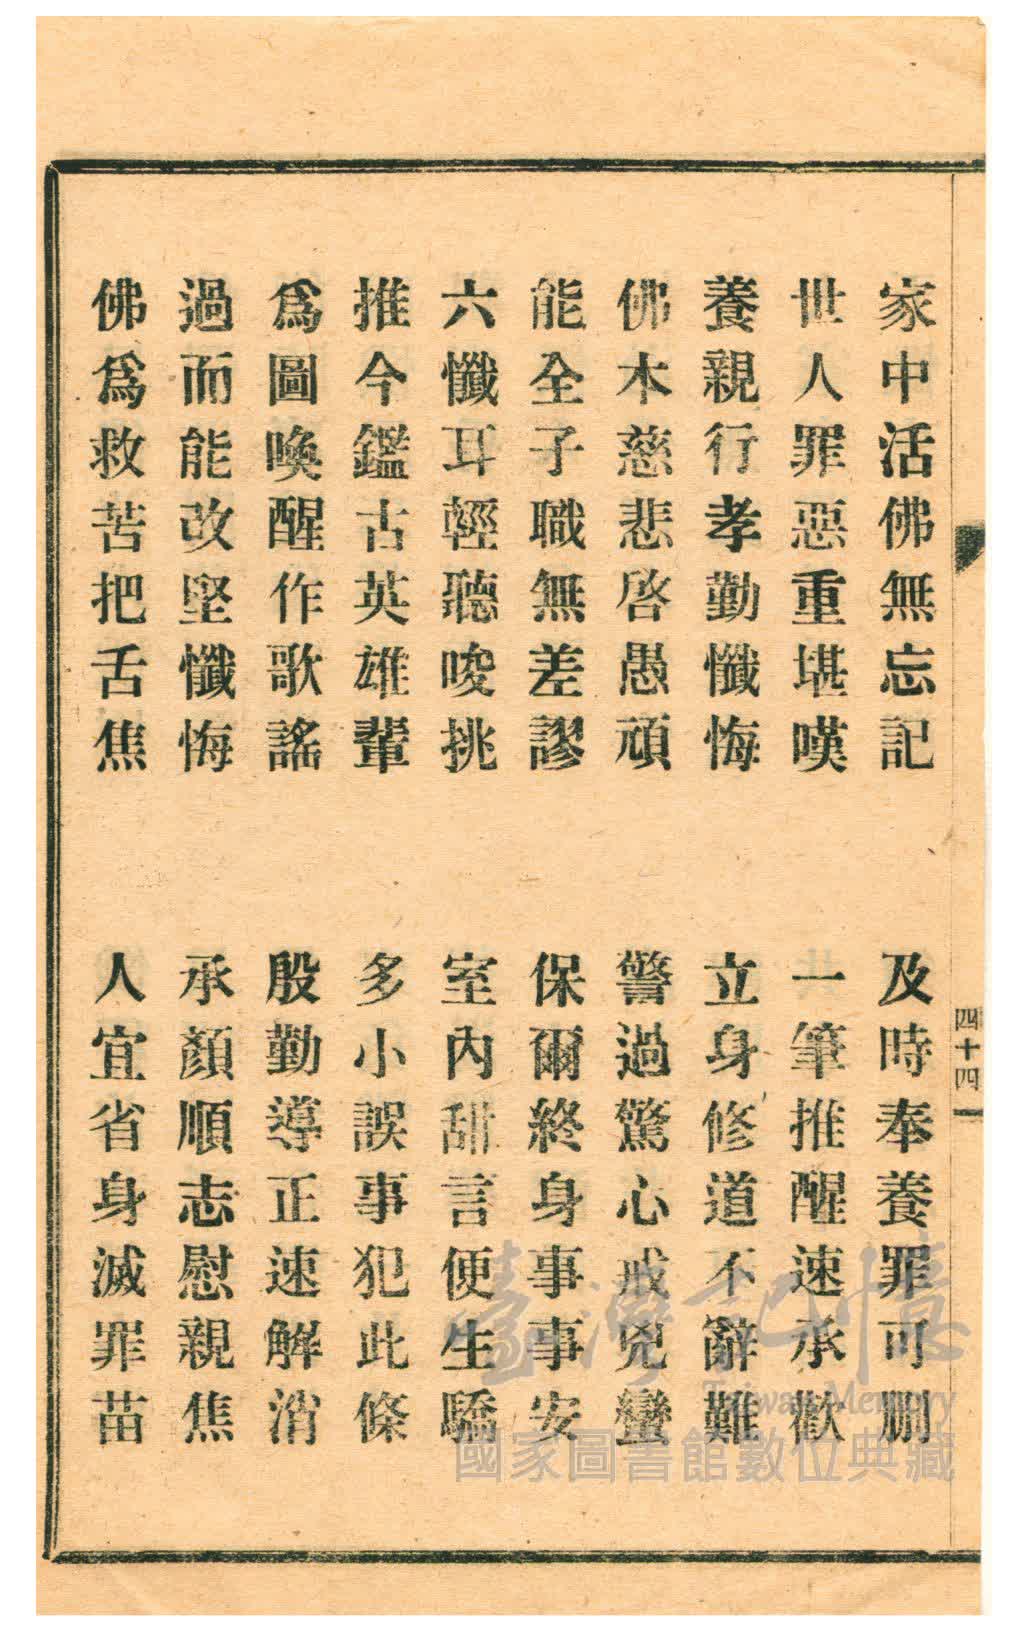 家中活佛無忘記　及時奉養罪可刪
世人罪惡重堪嘆　一筆推醒速承歡
養親行孝勤懺悔　立身修道不辭難
佛本慈悲啓愚頑　警過驚心戒兇蠻
能全子職無差謬　保爾終身事事安
六懺耳輕聽唆挑　室內甜言便生驕
推今鑑古英雄輩　多小誤事犯此條
爲圖喚醒作歌謠　殷勤導正速解消
過而能改堅懺悔　承顏順志慰親焦
佛爲救苦把舌焦　人宜省身滅罪苗
四十四
臺灣記憶
Taiwan Memory
國家圖書館數位典藏